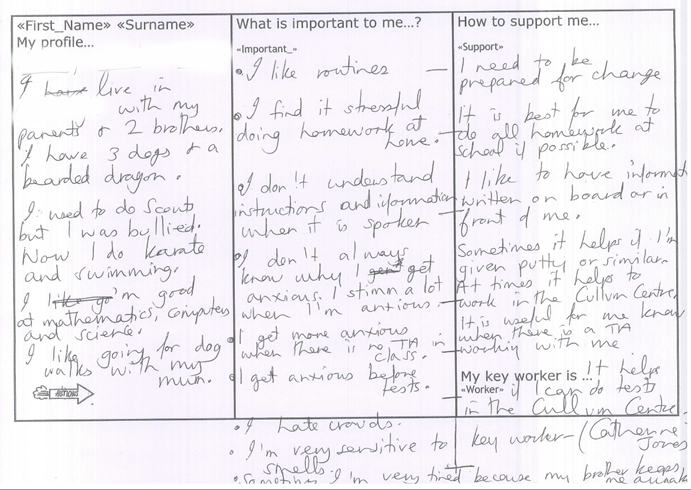 «First_Name» «Surname»
My profile...
I live in
with my
parents & 2 brothers.
I have 3 dogs & a
bearded dragon.
I used to do Scouts
but I was bullied.
Now I do karate
and swimming.
I like go'm good
at mathematics, computers
and science.
I like going for dog
walks with my
mum.
ACTION!
What is important to me...?
«Important_»
• I like routines
• I find it stressful
doing homework at
home.
• I don't understand
instructions and information
when it is spoken
• I don't always
know why I get
anxious. I stimm a lot
when I'm anxious.
• I get more anxious
when there is no TA in
class.
• I get anxious before
tests.
• I hate crowds.
• I'm very sensitive to
smells.
How to support me...
«Support»
I need to be
prepared for change
It is best for me to
do all homework at
school if possible.
I like to have informat
written on board or in
front of me.
Sometimes it helps if I'm
given putty or similar.
At times it helps to
work in the Cullum Centre.
It is useful for me know
when there is a TA
working with me
My key worker is ... It helps
«Worker» if I can do tests
in the Cullum Centre
key worker - (Catherine
Jones
• Sometimes I'm very tired because my brother keeps
me awake